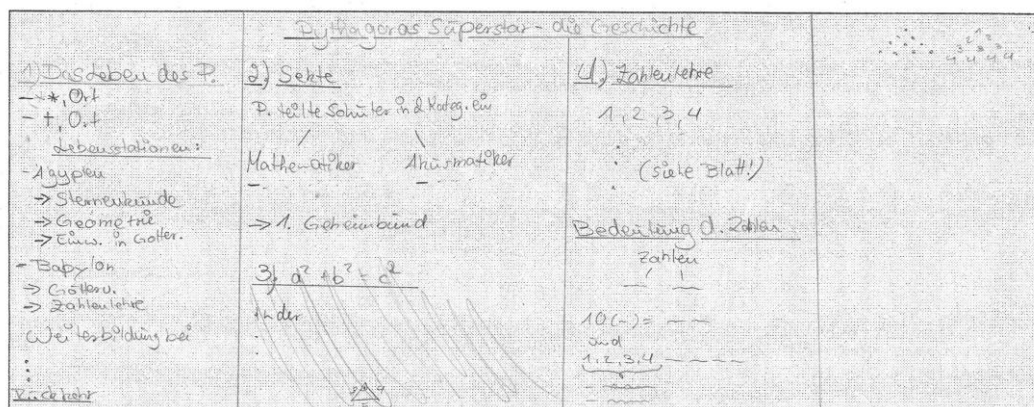 Pythagoras Superstar - die Geschichte
1) Das Leben des P.
- *, Ort
- †, Ort
Lebensstationen:
- Ägypten
→ Sternenkunde
→ Geometrie
→ Einw. in Götter.
- Babylon
→ Götterv.
→ Zahlenlehre
Weiterbildung bei
Rückkehr
2) Sekte
P. teilte Schüler in 2 Kateg. ein
Mathematiker Akusmatiker
→ 1. Geheimbund
3) a² + b² = c²
Inder
4) Zahlenlehre
1, 2, 3, 4
(siehe Blatt!)
Bedeutung d. Zahlen
Zahlen
10 (-) =
und
1, 2, 3, 4
1
3 2
4 4 4 4